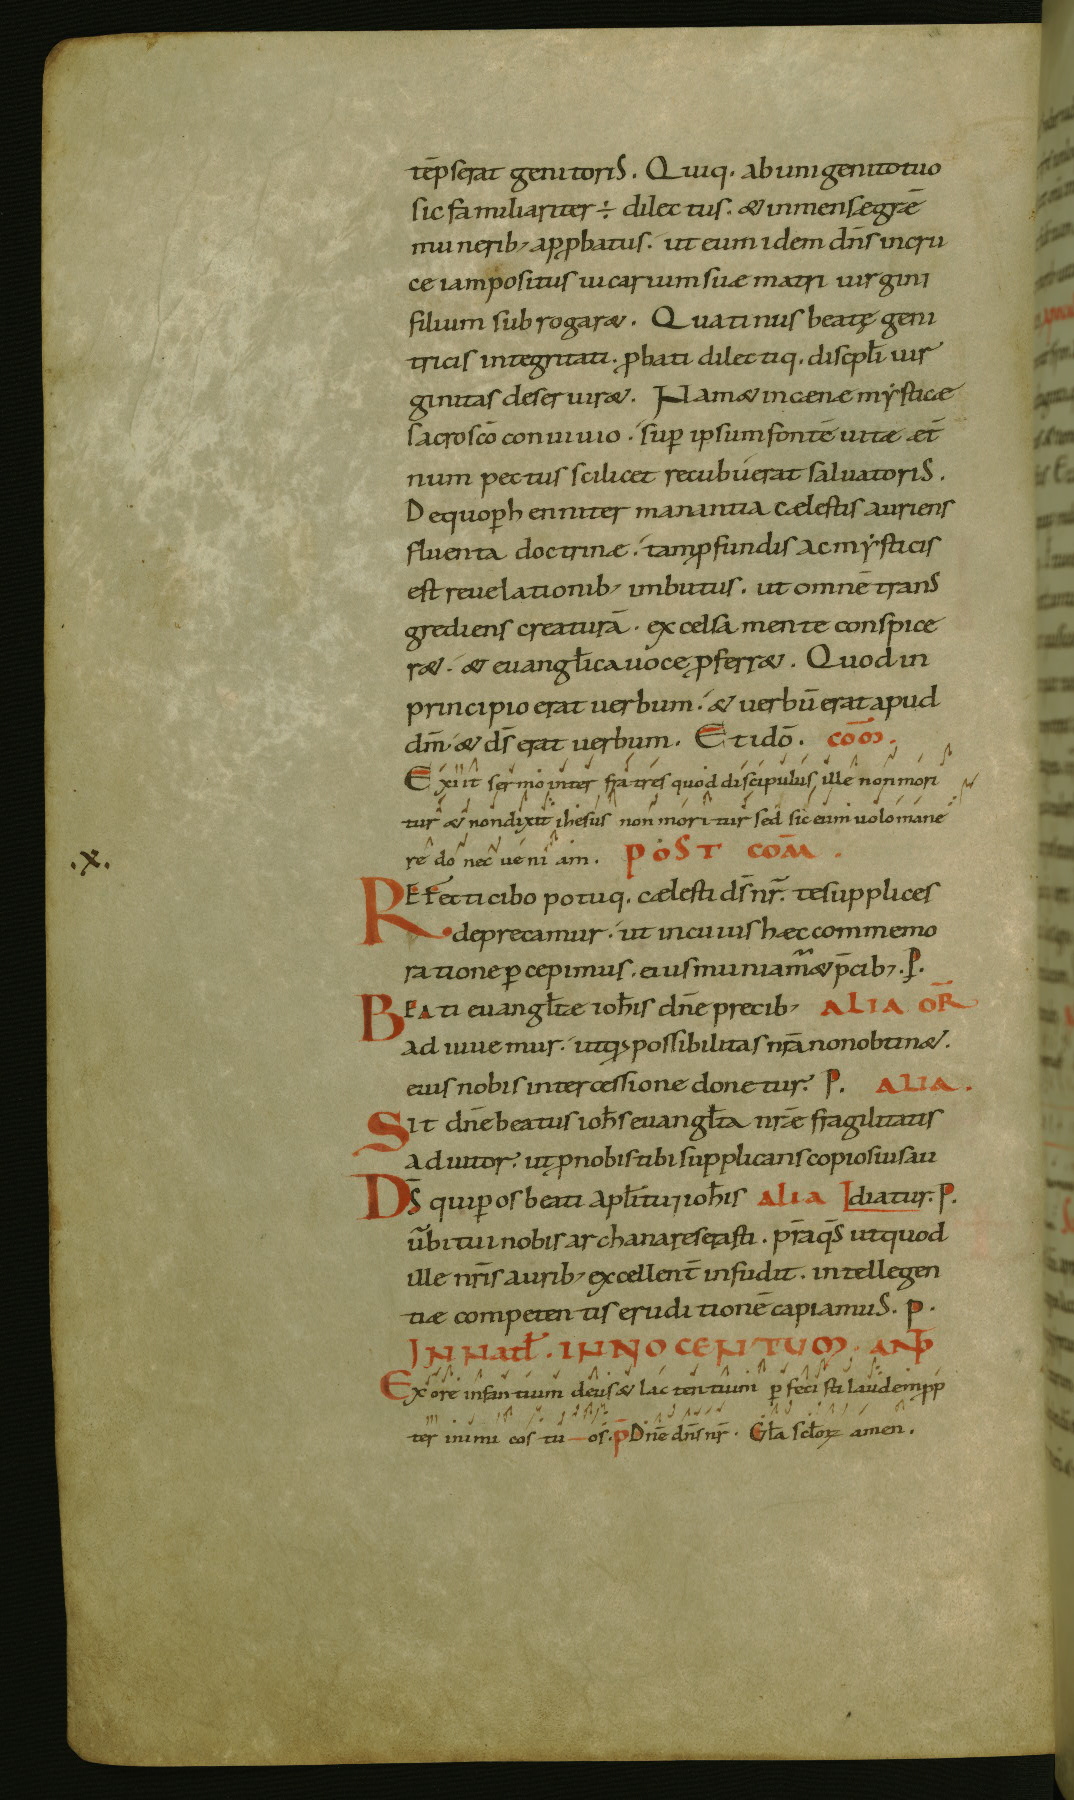 tēpserat genitoris. Quiq. ab unigenito tuo
sic familiariter ÷ dilectus. & inmensę grē
munerib; apꝓbatus. ut eum idem dn̄s in cru
ce iam positus uicarium suae matri uirgini
filium subrogar&. Quatinus beatę geni
tricis integritati. ꝓbati dilectiq. discpl̄i uir
ginitas deseruir&. Nam & in caenae mysticae
sacroscō conuiuio. suꝑ ipsum fontē uitae aet̄
num pectus scilicet recubuerat saluatoris.
De quo ꝑhenniter manantia caelestis auriens
fluenta doctrinae. tam ꝓfundis ac mysticis
est reuelationib; imbutus. ut omnē trans
grediens creaturā. excelsa mente conspice
r&. & euangl̄ica uoce ꝓferr&. Quod in
principio erat uerbum. & uerbū erat apud
dm̄ & ds̄ erat uerbum. Et idō. com̄.
Exiit sermo inter fratres quod discipulus ille non mori
tur & non dixit ihesus non moritur sed sic eum uolo mane
re donec ueniam. POST COM̄.
.x.
REfecti cibo potuq. caelesti ds̄ nr̄. te supplices
deprecamur. ut in cuius haec commemo
ratione ꝑcepimus. eius muniam̄ & p̄cib;. P.
BEAti euangl̄tae ioh̄is dn̄e precib; ALIA OR̄
adiuuemur. ut qđ possibilitas nr̄a non obtin&.
eius nobis intercessione donetur. P. ALIA.
SIt dn̄e beatus ioh̄s euangl̄ta nr̄ae fragilitatis
adiutor. ut ꝓ nobis tibi supplicans copiosius au
Ds̄ qui ꝑ os beati apl̄i tui ioh̄is ALIA diatur. P.
ūbi tui nobis archana reserasti. p̄ra q̄s ut quod
ille nr̄is aurib; excellent̄ infudit. intellegen
tiae competentis eruditionē capiamus. P.
IN NATL̄. INNOCENTUM. ANP̄
Ex ore infantium deus & lactentium ꝑfecisti laudem ꝓpp
ter inimicos tuos. p̄ Dn̄e dn̄s nr̄. Gl̄a scl̄oꝝ amen.